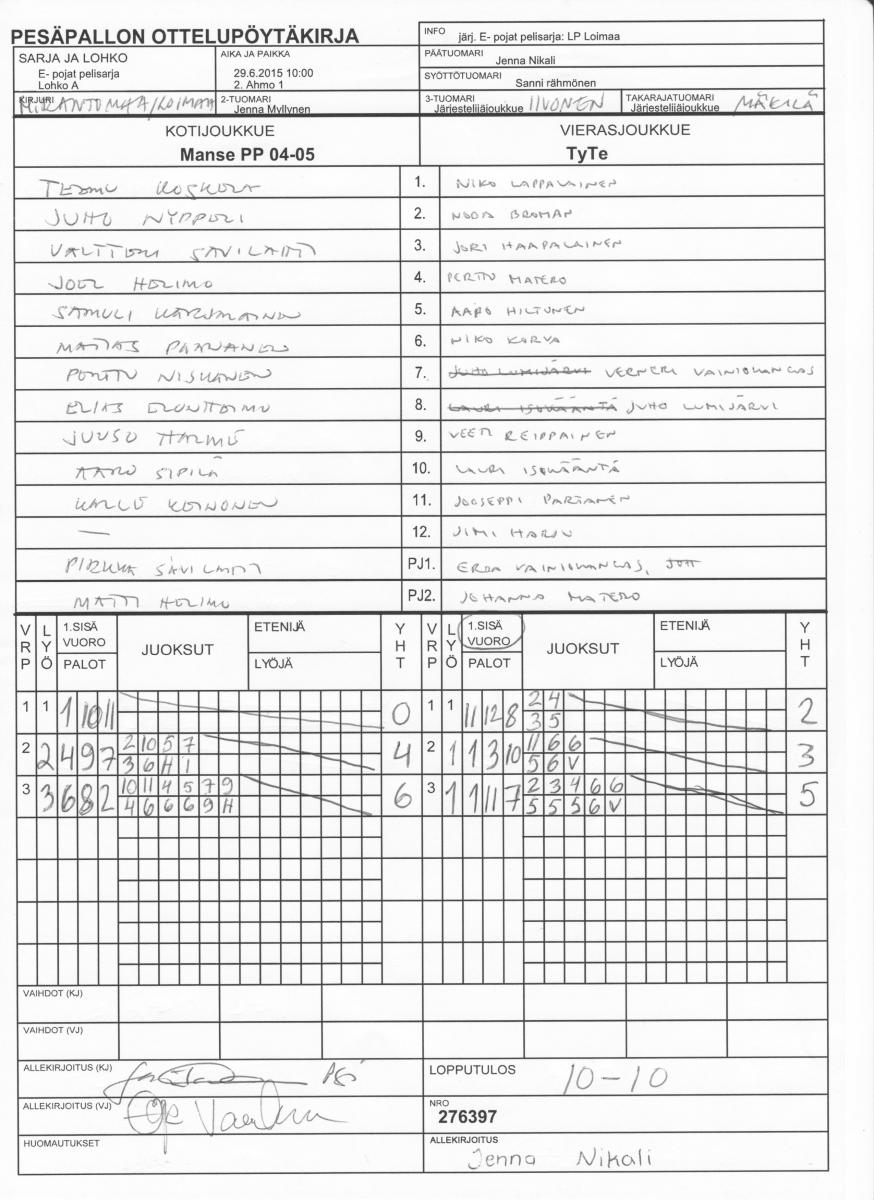 PESÄPALLON OTTELUPÖYTÄKIRJA
INFO järj. E- pojat pelisarja: LP Loimaa
SARJA JA LOHKO
E- pojat pelisarja
Lohko A
AIKA JA PAIKKA
29.6.2015 10:00
2. Ahmo 1
PÄÄTUOMARI
Jenna Nikali
SYÖTTÖTUOMARI
Sanni rähmönen
KIRJURI
2-TUOMARI
Jenna Myllynen
3-TUOMARI
Järjestelijäjoukkue IIVONEN
TAKARAJATUOMARI
Järjestelijäjoukkue MÄKILÄ
KOTIJOUKKUE
Manse PP 04-05
VIERASJOUKKUE
TyTe
TEEMU KOSKELA 1. NIKO LAPPALAINEN
JUHO NYPPELI 2. NOOA BROMAN
VALTTERI SAVILAHTI 3. JORI HAAPALAINEN
JOEL HELIMO 4. PERTTU MATERO
SAMULI 5. AAPO HILTUNEN
MATIAS PAANANEN 6. NIKO KORVA
PERTTU NISKANEN 7. JUHO LUMIJÄRVI VERNERI VAINIOKANGAS
ELIAS 8. LAURI ISOKÄÄNTÄ JUHO LUMIJÄRVI
JUUSO HALME 9. VEETI REIPPAINEN
AARO SIPILÄ 10. LAURI ISOKÄÄNTÄ
KALLE KEINONEN 11. JOOSEPPI PARTANEN
— 12. JIMI HARJU
PIRKKA SAVILAHTI PJ1. VAINIOKANGAS,
MATTI HELIMO PJ2. JOHANNA MATERO
VRP LYÖ 1.SISÄ VUORO PALOT JUOKSUT ETENIJÄ LYÖJÄ YHT VRP LYÖ 1.SISÄ VUORO PALOT JUOKSUT ETENIJÄ LYÖJÄ YHT
1 1 1 10 11 0 1 1 11 12 8 2 4 2
3 5
2 2 4 9 7 2 10 5 7 4 2 1 1 3 10 11 6 6 3
3 6 H 1 5 6 V
3 3 6 8 2 10 11 4 5 7 9 6 3 1 1 11 7 2 3 4 6 6 5
4 6 6 6 9 H 5 5 5 6 V
VAIHDOT (KJ)
VAIHDOT (VJ)
ALLEKIRJOITUS (KJ)
LOPPUTULOS 10-10
ALLEKIRJOITUS (VJ)
NRO
276397
HUOMAUTUKSET
ALLEKIRJOITUS
Jenna Nikali